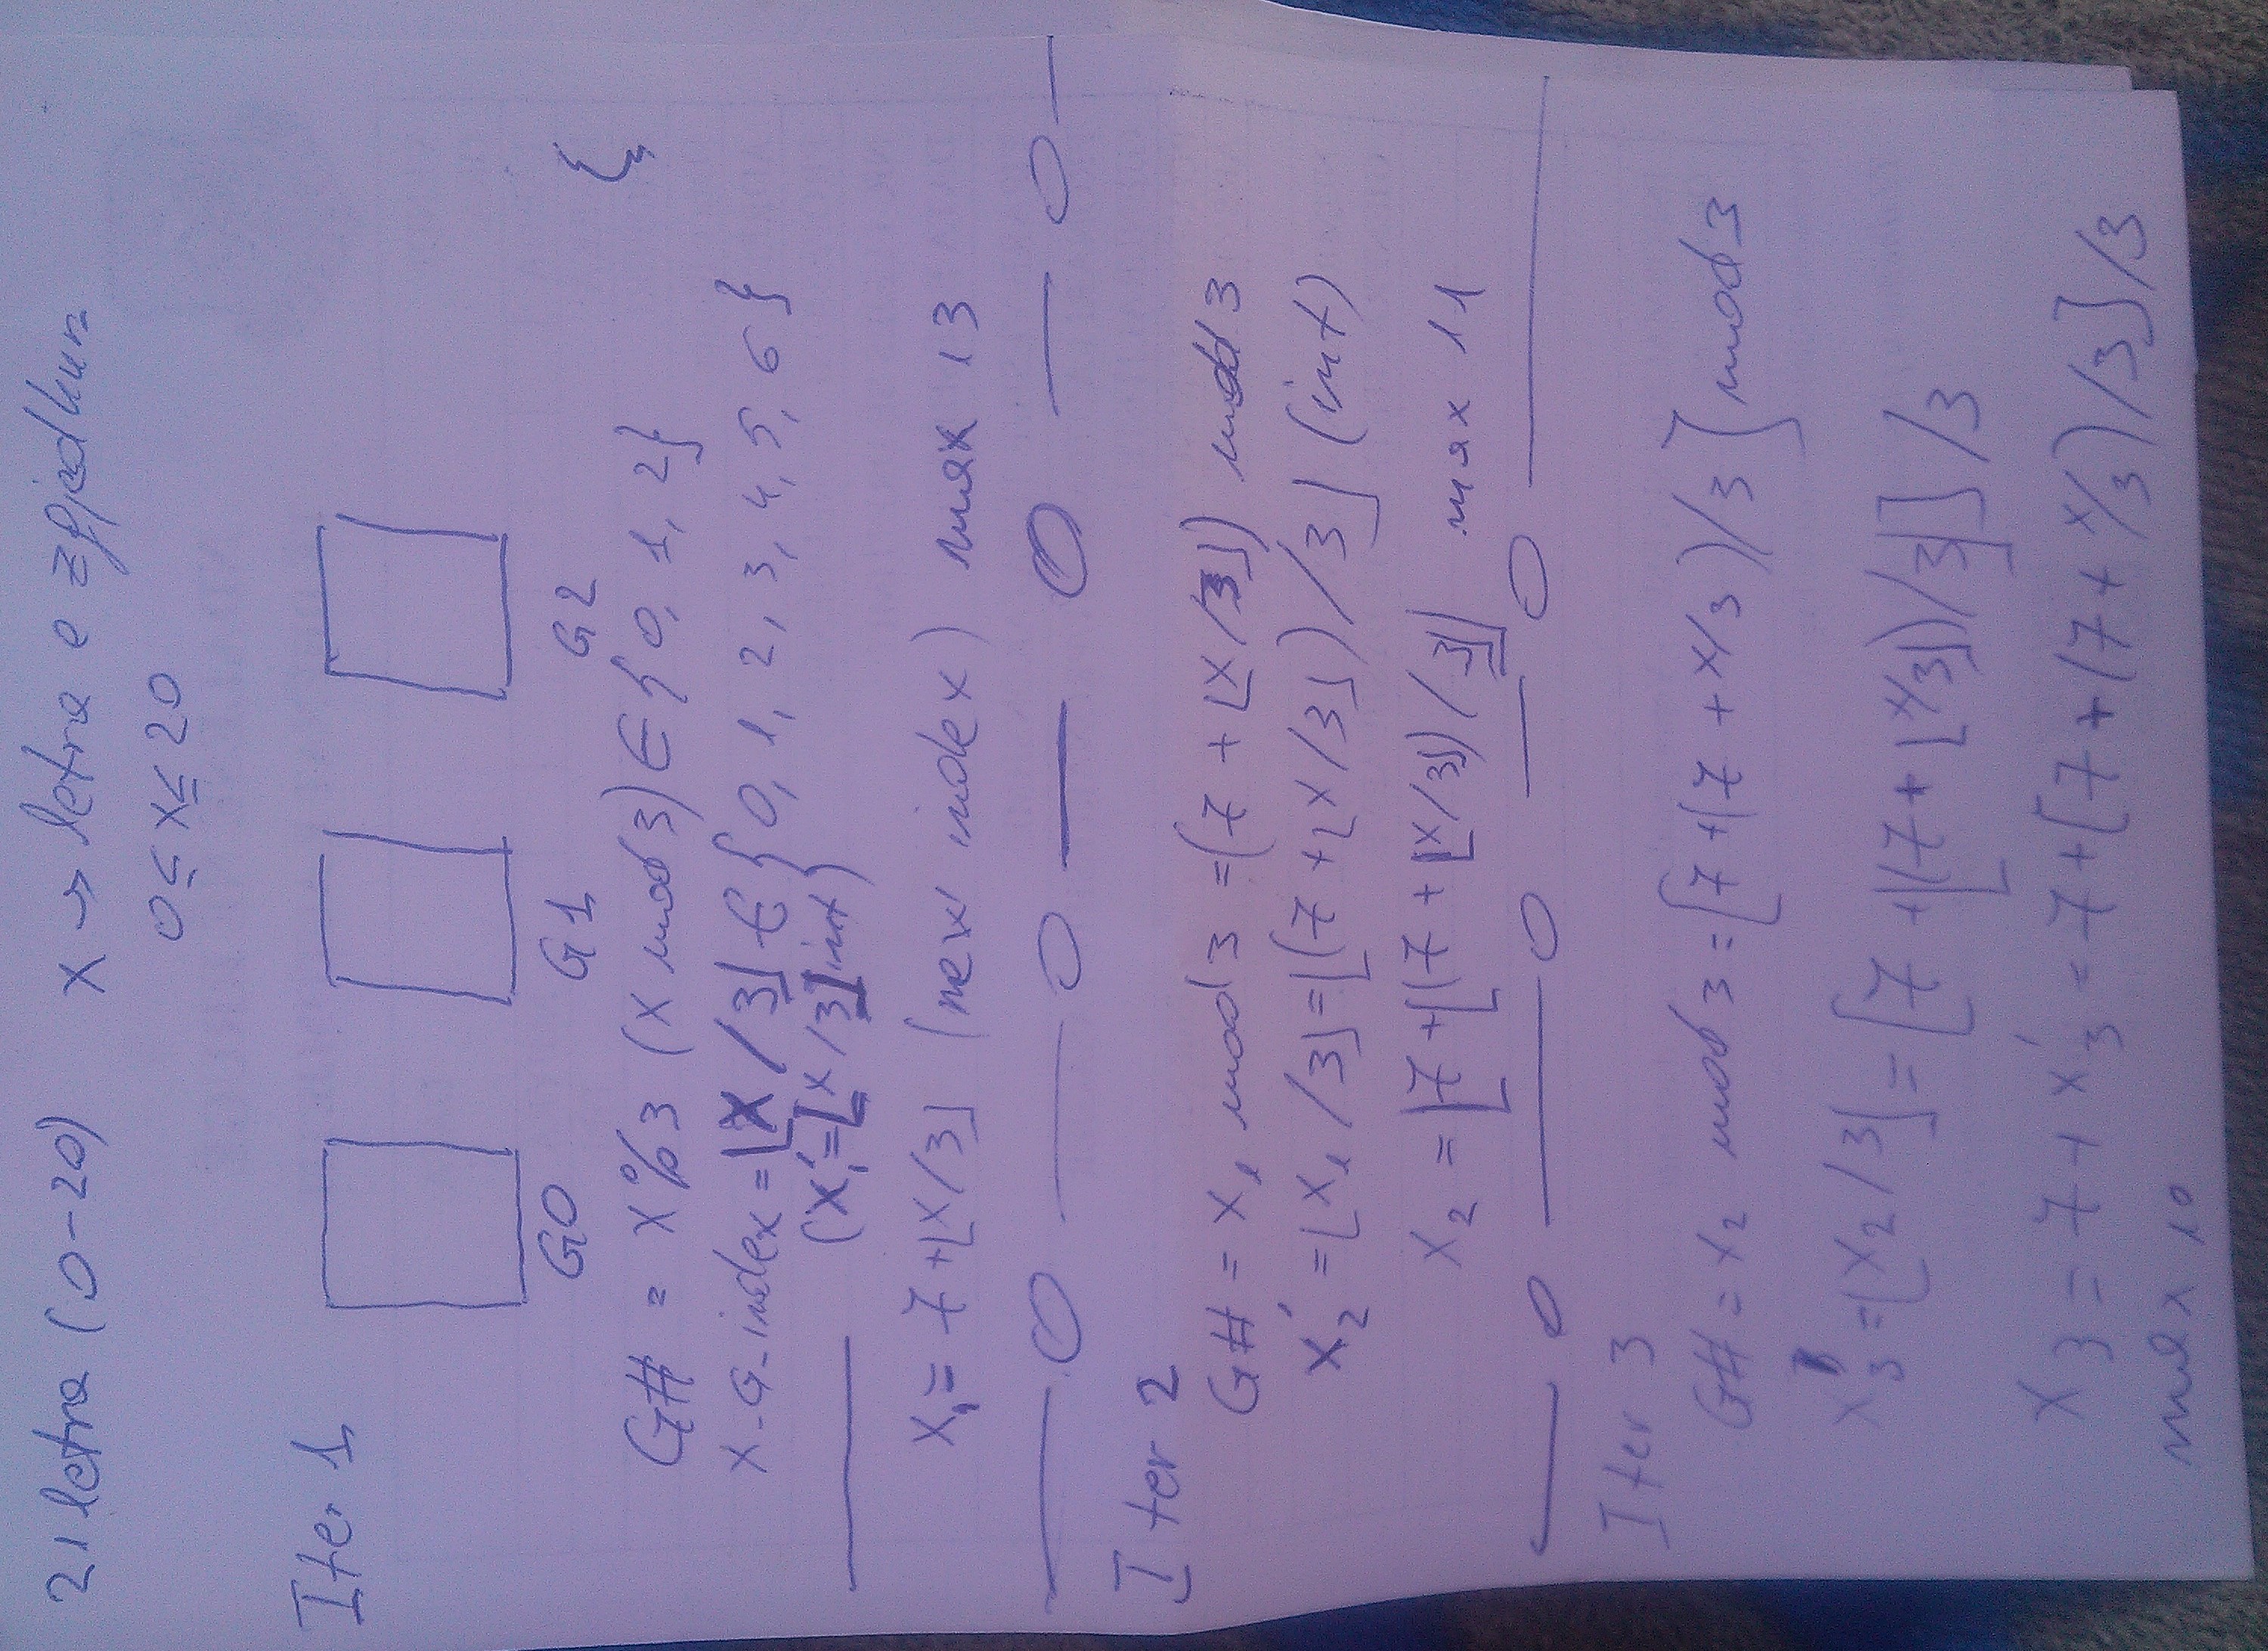 21 letra (0-20) x → letra e zgjedhur
0 ≤ x ≤ 20
Iter 1
G0 G1 G2
{
G# = x%3 (x mod 3) ∈ {0, 1, 2}
x-G-index = ⌊x/3⌋ ∈ {0, 1, 2, 3, 4, 5, 6}
(x₁' = ⌊x/3⌋ int)
x₁ = 7 + ⌊x/3⌋ (new index) max 13
Iter 2
G# = x₁ mod 3 = (7 + ⌊x/3⌋) mod 3
x₂' = ⌊x₁/3⌋ = ⌊(7 + ⌊x/3⌋)/3⌋ (int)
x₂ = ⌊7 + ⌊(7 + ⌊x/3⌋)/3⌋⌋ max 11
Iter 3
G# = x₂ mod 3 = [7 + (7 + x/3)/3] mod 3
x₃' = ⌊x₂/3⌋ = [7 + ⌊(7 + ⌊x/3⌋)/3⌋]/3
x₃ = 7 + x₃' = 7 + [7 + (7 + x/3)/3]/3
max 10